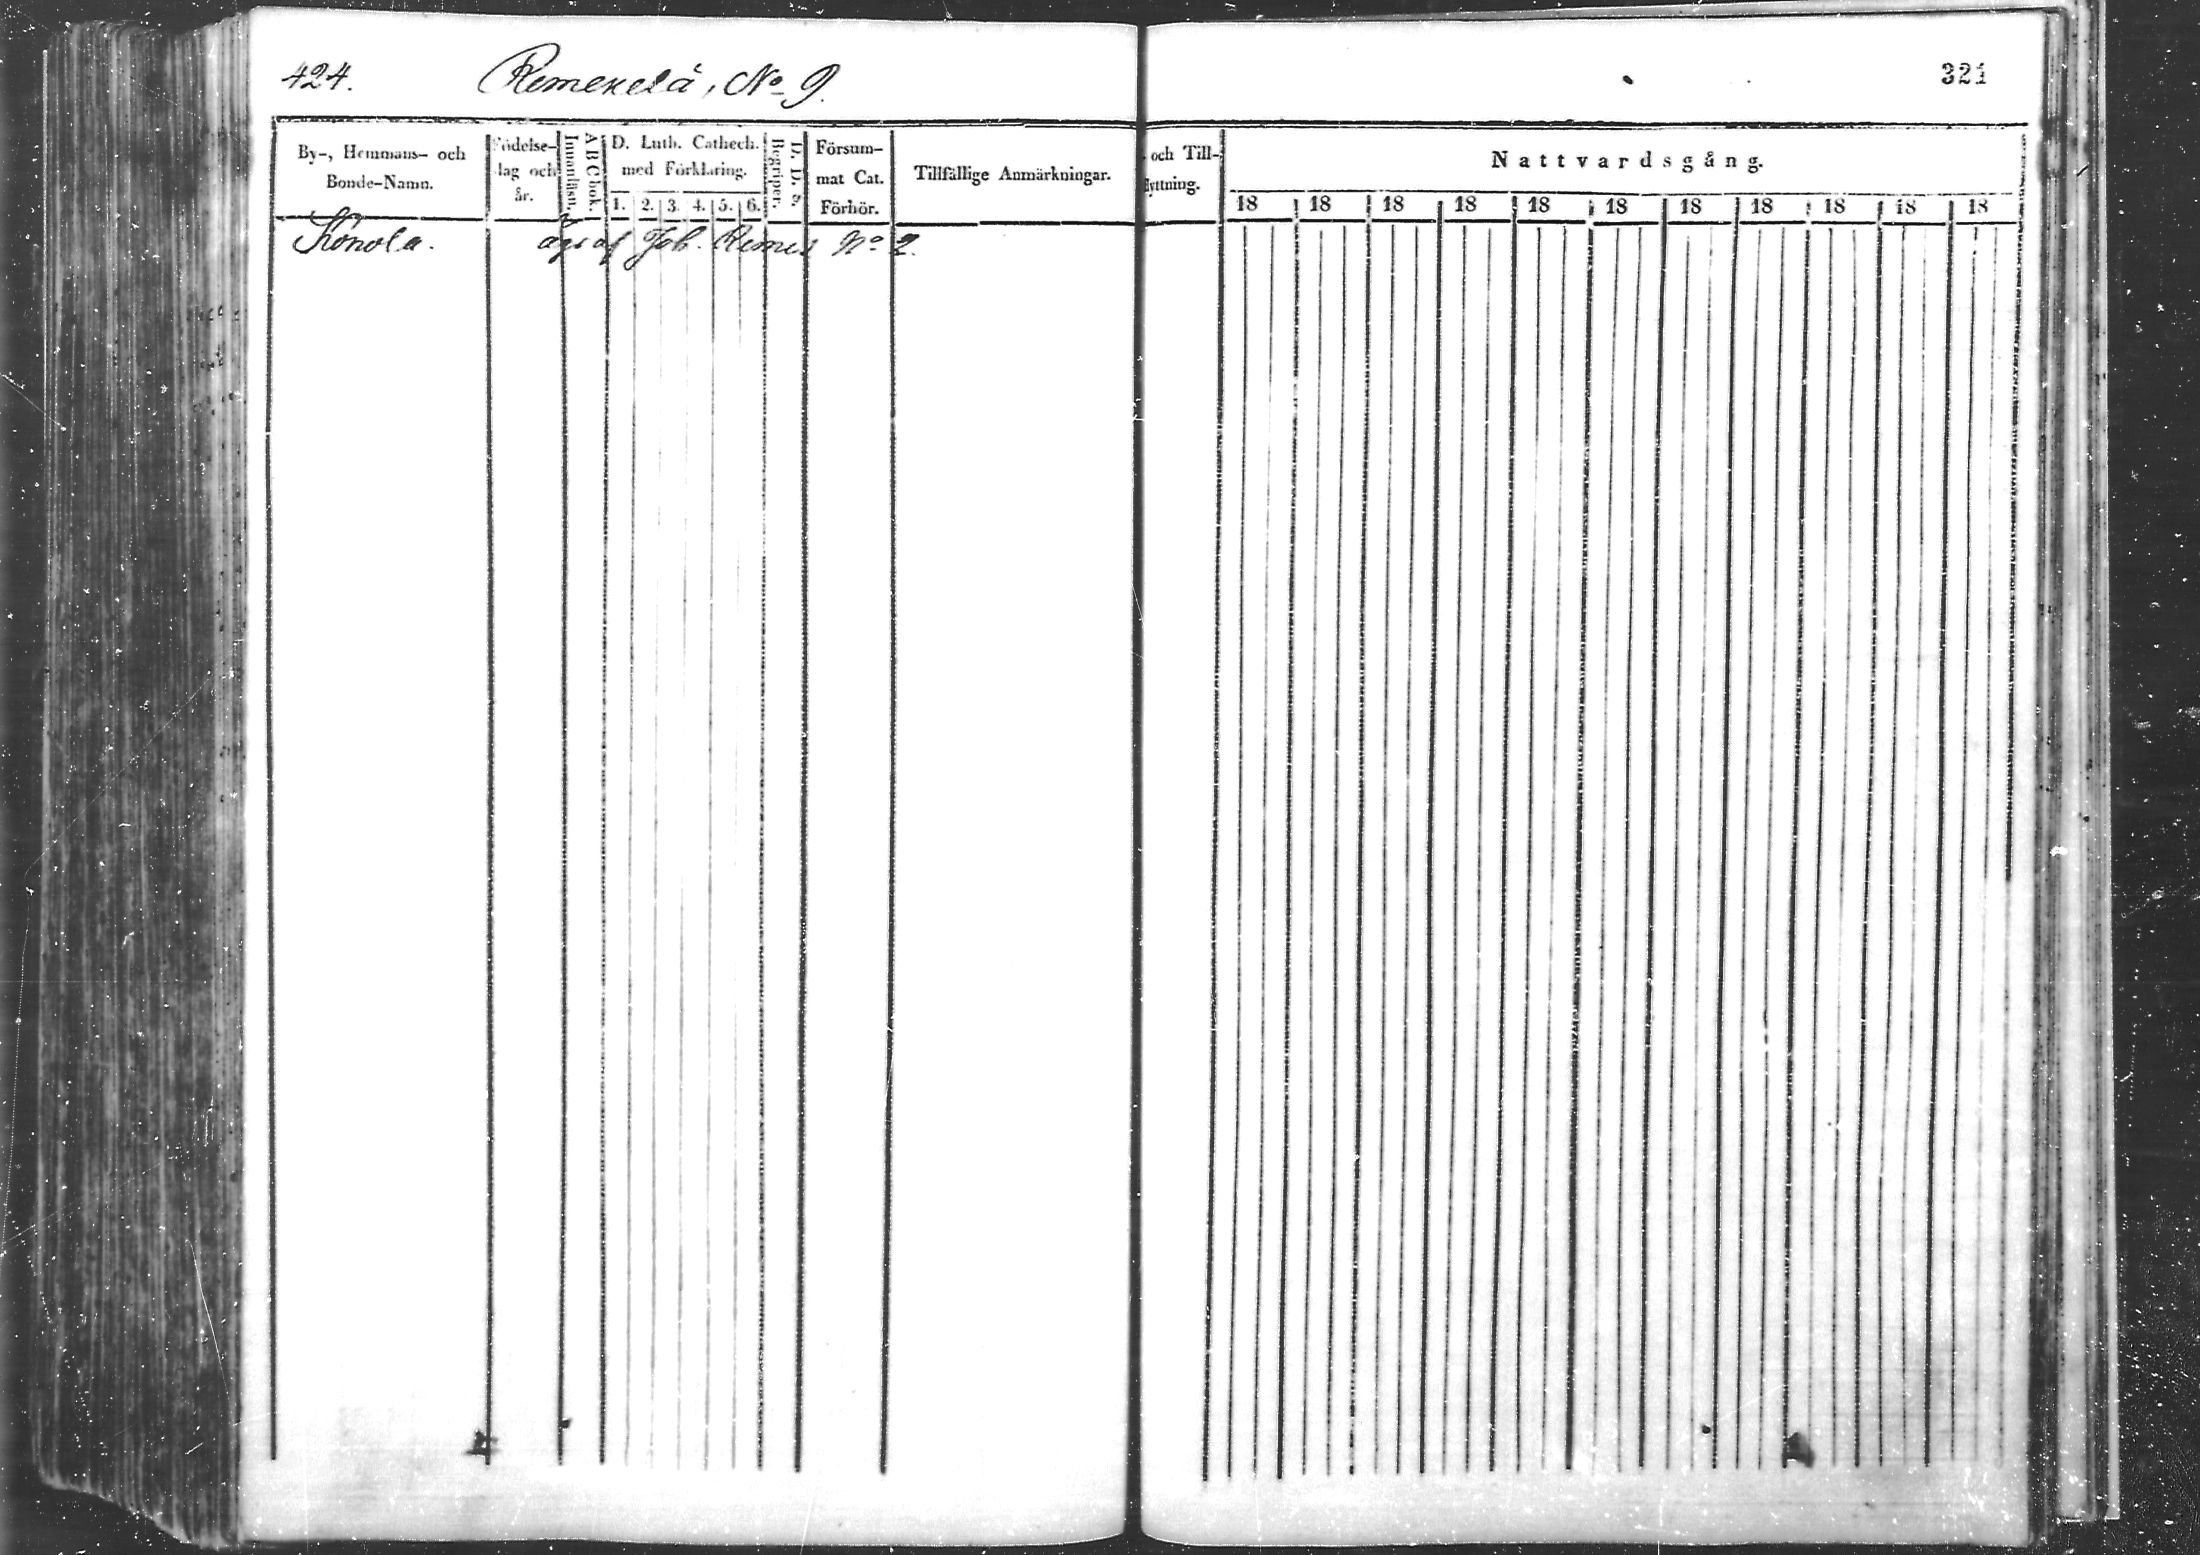 424. Remekselä, No 9.
321
By-, Hemmans- och
Bonde-Namn.
Födelse-
dag och
år.
Innanläsn.
A B C bok.
D. Luth. Cathech.
med Förklaring.
1. 2. 3. 4. 5. 6.
Begriper.
D. D. a.
Försum-
mat Cat.
Förhör.
Tillfällige Anmärkningar.
och Till-
flyttning.
Nattvardsgång.
18 18 18 18 18 18 18 18 18 18 18
Könölä. äges af Joh. Remes No 2.